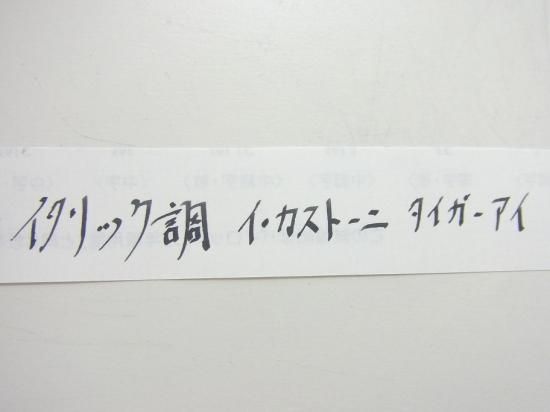 イタリック調 イ・カストーニ タイガーアイ